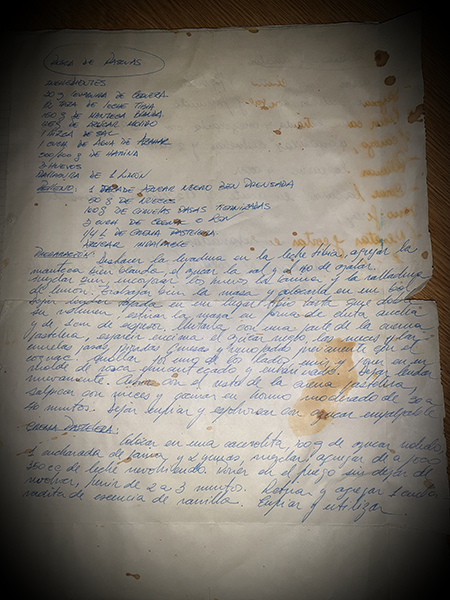 ROSCA DE PASCUAS
INGREDIENTES
20 g LEVADURA DE CERVEZA
1/2 TAZA DE LECHE TIBIA
150 g DE MANTECA BLANDA
100 g DE AZUCAR MOLIDO
1 PIZCA DE SAL
1 CUCH. DE AGUA DE AZAHAR
500/600 g DE HARINA
3 HUEVOS
RALLADURA DE 1 LIMON
RELLENO: 1 TAZA DE AZUCAR NEGRO BIEN PRENSADA
50 g DE NUECES
100 g DE CIRUELAS PASAS TIERNIZADAS
3 CUCH DE COGNAC O RON
1/4 L DE CREMA PASTELERA
AZUCAR IMPALPABLE
PREPARACIÓN: Deshacer la levadura en la leche tibia, agregar la
manteca bien blanda, el azucar la sal y el agua de azahar.
mezclar bien, incorporar los huevos la harina y la ralladura
de limon. Trabajar bien la masa y colocarla en un bol
Dejar leudar tapada en un lugar tibio hasta que doble
su volumen. estirar la masa en forma de cinta ancha
y de 2 cm de espesor, Untarla con una parte de la crema
pastelera, esparcir encima el azucar negro, las nueces y las
ciruelas pasas, picadas finas y remojadas previamente con el
cognac. Arrollar poner en un
molde de rosca enmantecado y enharinado. Dejar leudar
nuevamente. Cubrir con el resto de la crema pastelera,
salpicar con nueces y cocinar en horno moderado de 30 a
40 minutos. Dejar enfriar y espolvorear con azucar impalpable
CREMA PASTELERA:
Colocar en una cacerolita, 100 g de azucar molido,
1 cucharada de harina y 2 yemas, mezclar, agregar de a poco
250 cc de leche revolviendo. llevar al fuego sin dejar de
revolver, hervir de 2 a 3 minutos. Retirar y agregar 1 cucha-
radita de esencia de vainilla. Enfriar y utilizar.